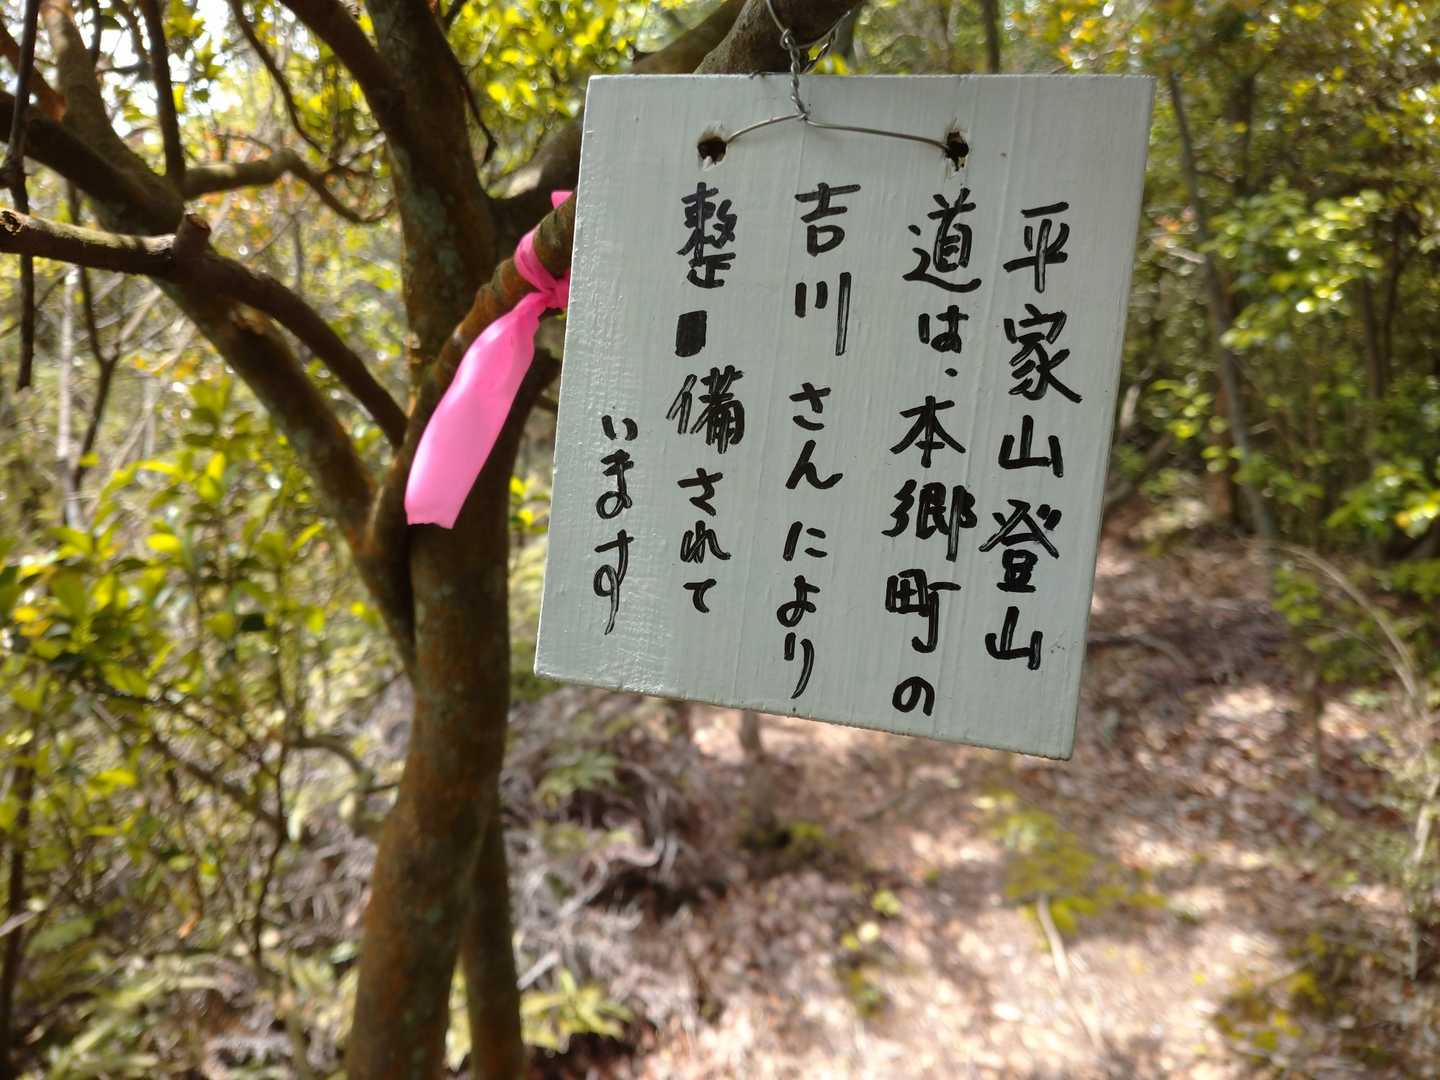 平家山登山
道は、本郷町の
吉川さんにより
整備されて
います